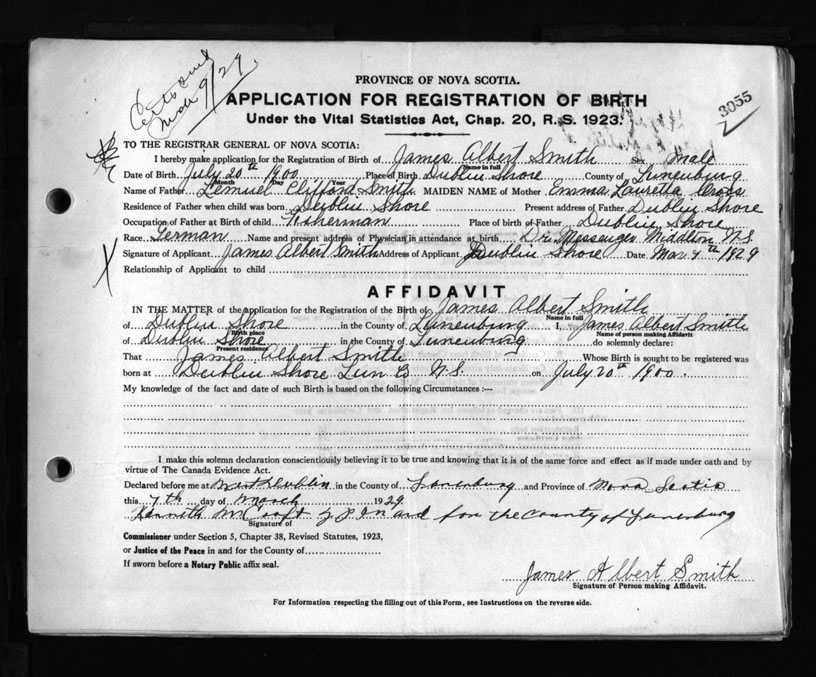 Mar 9/29
PROVINCE OF NOVA SCOTIA.
APPLICATION FOR REGISTRATION OF BIRTH
3055
Under the Vital Statistics Act, Chap. 20, R. S. 1923.
TO THE REGISTRAR GENERAL OF NOVA SCOTIA:
I hereby make application for the Registration of Birth of James Albert Smith Sex Male
Name in full
Date of Birth July 20th 1900 Place of Birth Dublin Shore County of Lunenburg
Month Day Year
Name of Father Lemuel Clifford Smith MAIDEN NAME of Mother Emma Lauretta Cross
Residence of Father when child was born Dublin Shore Present address of Father Dublin Shore
Occupation of Father at Birth of child Fisherman Place of birth of Father Dublin Shore
Race German Name and present address of Physician in attendance at birth Dr. Messenger Middlton N.S.
Signature of Applicant James Albert Smith Address of Applicant Dublin Shore Date Mar 7th 1929
Relationship of Applicant to child
AFFIDAVIT
IN THE MATTER of the application for the Registration of the Birth of James Albert Smith
Name in full
of Dublin Shore in the County of Lunenburg I, James Albert Smith
Birth place Name of person making Affidavit
of Dublin Shore in the County of Lunenburg do solemnly declare:
Present residence
That James Albert Smith Whose Birth is sought to be registered was
born at Dublin Shore Lun Co N.S. on July 20th 1900.
My knowledge of the fact and date of such Birth is based on the following Circumstances :—
I make this solemn declaration conscientiously believing it to be true and knowing that it is of the same force and effect as if made under oath and by
virtue of The Canada Evidence Act.
Declared before me at West Dublin in the County of Lunenburg and Province of Nova Scotia
this 7th day of March 1929
Kenneth J P in and for the County of Lunenburg
Signature of
Commissioner under Section 5, Chapter 38, Revised Statutes, 1923,
or Justice of the Peace in and for the County of
If sworn before a Notary Public affix seal.
James Albert Smith
Signature of Person making Affidavit.
For Information respecting the filling out of this Form, see Instructions on the reverse side.